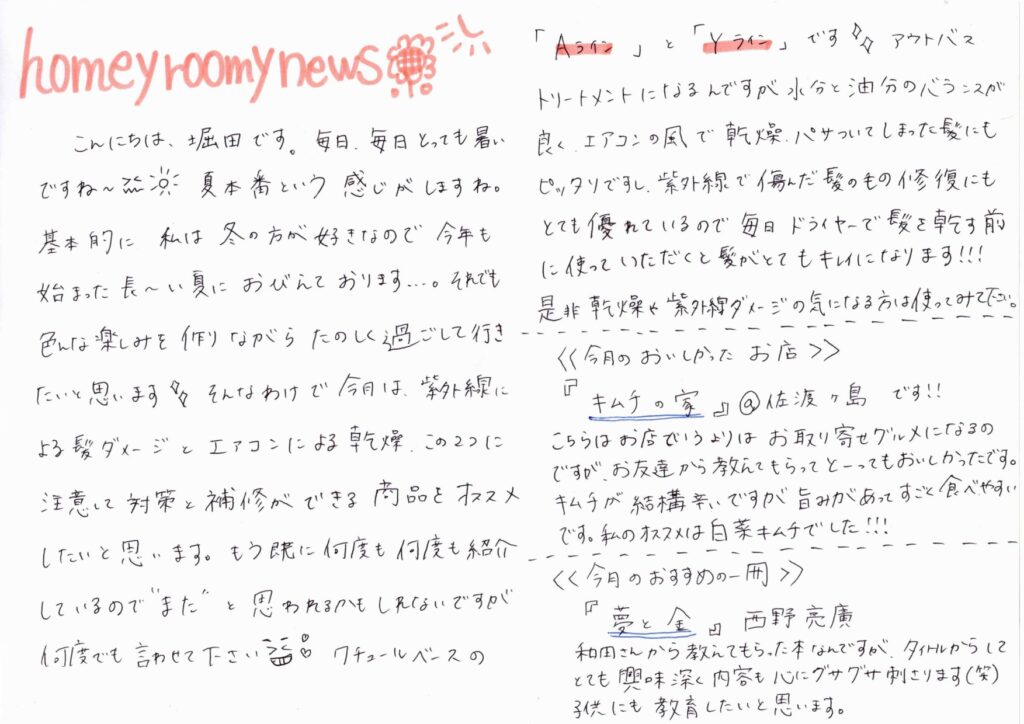 homeyroomynews
こんにちは、堀田です。毎日、毎日とっても暑い
ですね〜 夏本番という感じがしますね。
基本的に 私は冬の方が好きなので 今年も
始まった長〜い夏に おびえております…。それでも
色んな楽しみを作りながら たのしく過ごして行き
たいと思います そんなわけで 今月は、紫外線に
よる髪ダメージとエアコンによる乾燥、この2つに
注意して 対策と補修ができる 商品をオススメ
したいと思います。もう既に何度も何度も紹介
しているので"また"と思われるかもしれないですが
何度でも言わせて下さい ワチュールベースの
「Aライン」と「Yライン」です アウトバス
トリートメントになるんですが 水分と油分のバランスが
良く、エアコンの風で乾燥、パサついてしまった髪にも
ピッタリですし、紫外線で傷んだ髪のもの修復にも
とても優れているので 毎日ドライヤーで髪を乾す前
に使っていただくと髪がとてもキレイになります!!!
是非乾燥や紫外線ダメージの気になる方は使ってみて下さい。
<<今月のおいしかった お店>>
『キムチの家』@佐渡ヶ島 です!!
こちらはお店でいうよりは お取り寄せグルメになるの
ですが、お友達から教えてもらってとーってもおいしかったです。
キムチが 結構辛いですが 旨みがあってすごく食べやすい
です。私のオススメは白菜キムチでした!!!
<<今月のおすすめの一冊>>
『夢と金』 西野亮廣
和田さんから教えてもらった本なんですが、タイトルからして
とても 興味深く内容も心にグサグサ刺さります(笑)
子供にも 教育したいと思います。